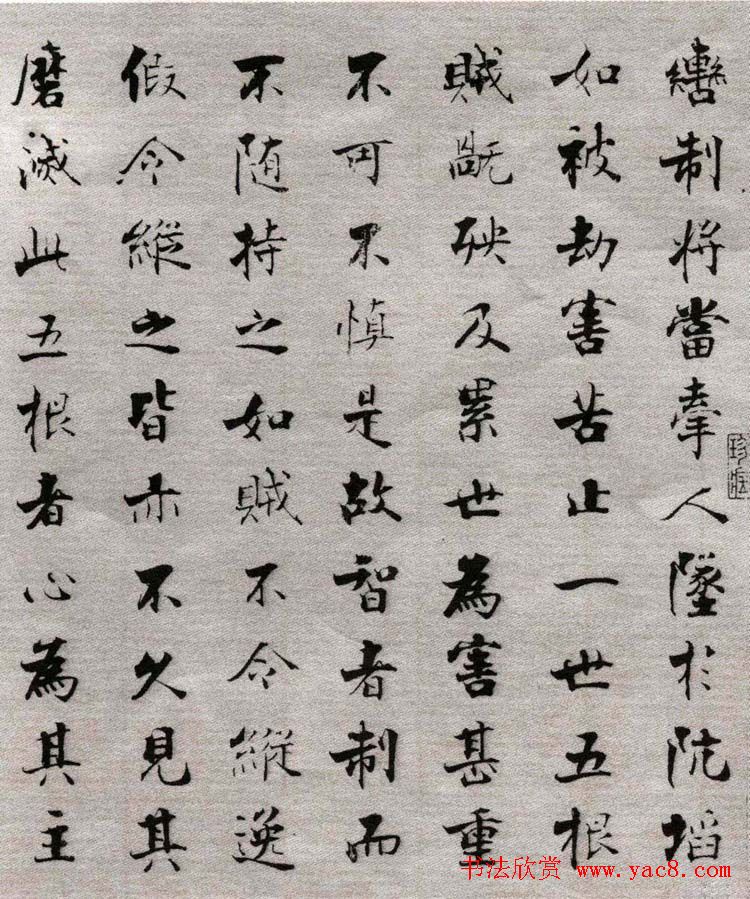 轡制將當牽人墜於阬埳
如被劫害苦止一世五根
賊禍殃及累世為害甚重
不可不慎是故智者制而
不随持之如賊不令縱逸
假令縱之皆亦不久見其
磨滅此五根者心為其主
珍藏
书法欣赏 www.yac8.com